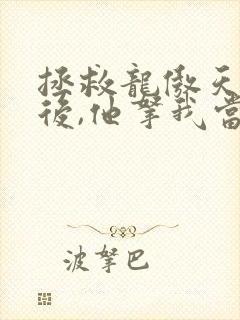 拯救龍傲天
後,他拏我當
波拏巴